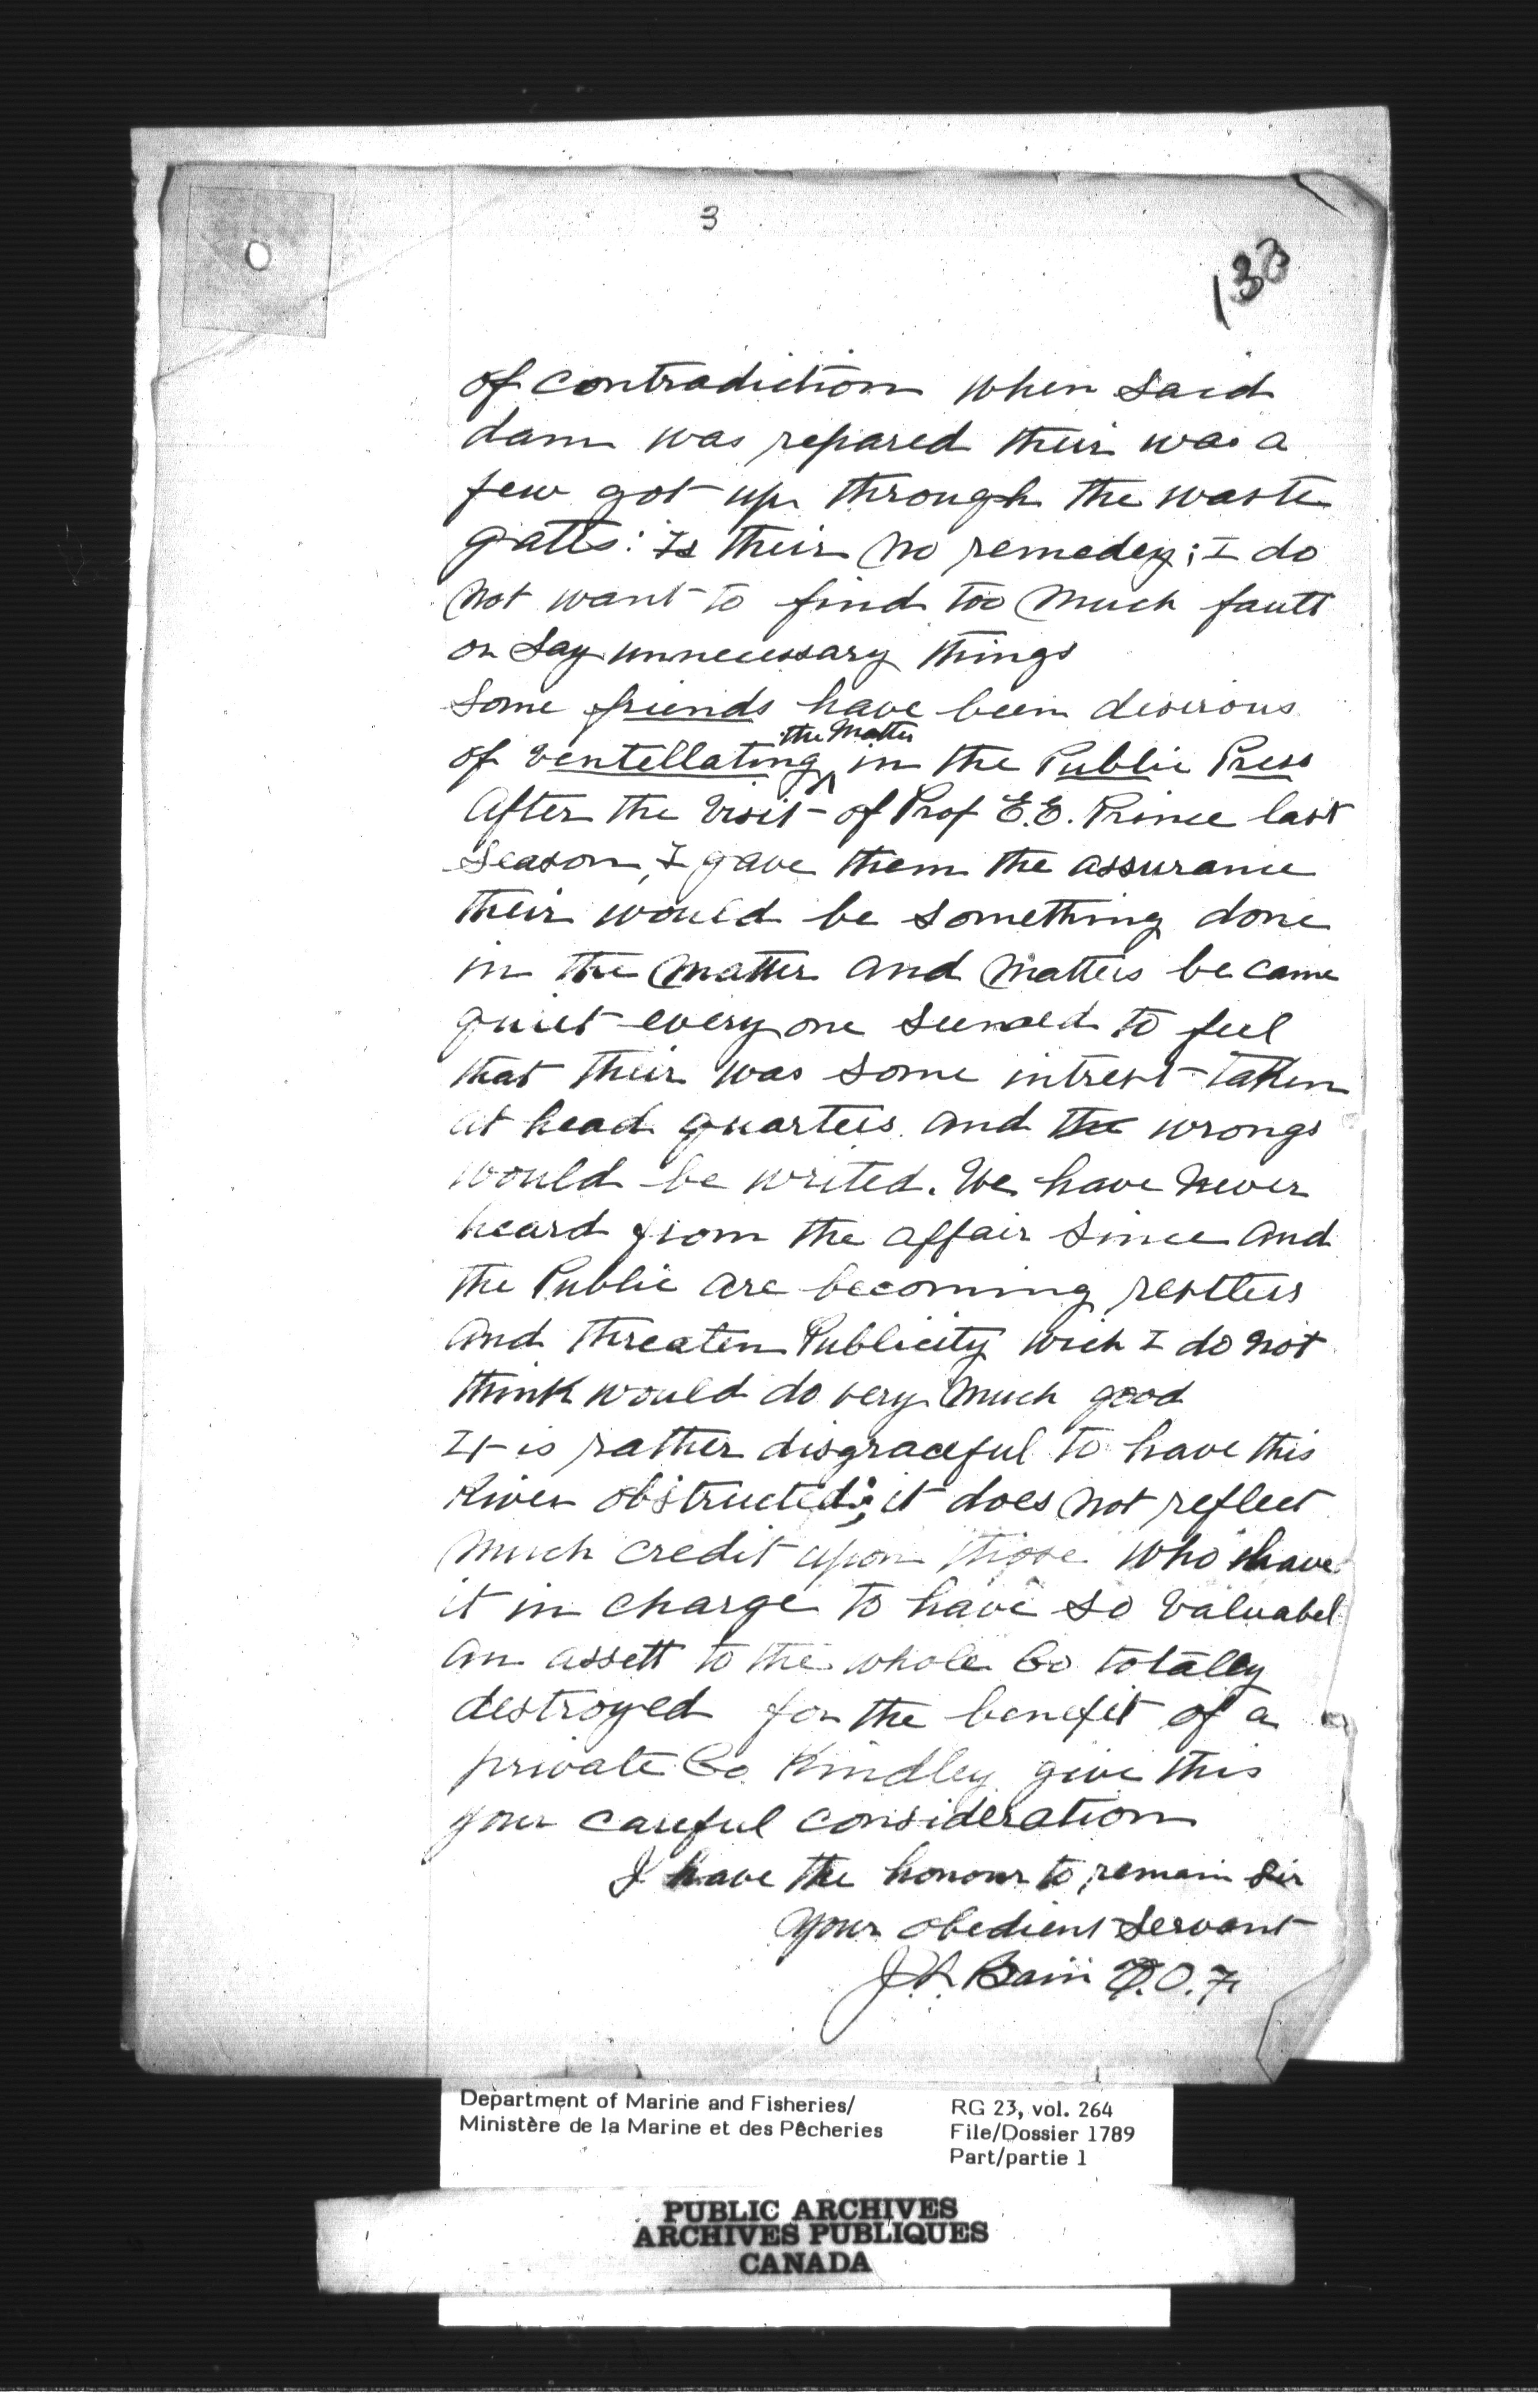 3
133
of contradiction when said
dam was repared their was a
few got up through the waste
gates: Is their no remedey; I do
not want to find too much fault
or Say unnecessary things
Some friends have been desirous
the Matter
of ventellating in the Public Press
After the Visit of Prof E.E. Prince last
Season, I gave them the assurance
their would be something done
in the Matter and Matters became
quiet every one seemed to feel
that their was some intrest taken
at head quarters and the wrongs
would be writed. We have never
heard from the affair Since and
the Public are becoming restless
and threaten Publicity wich I do not
think would do very much good
It is rather disgraceful to have this
River obstructed; it does not reflect
much credit upon those who have
it in charge to have so valuabel
an assett to the whole Co totally
destroyed for the benefit of a
private Co. Kindley give this
your careful consideration
I have the honour to remain Sir
Your obedient Servant
Bain O. F.
Department of Marine and Fisheries/
Ministère de la Marine et des Pêcheries
RG 23, vol. 264
File/Dossier 1789
Part/partie 1
PUBLIC ARCHIVES
ARCHIVES PUBLIQUES
CANADA